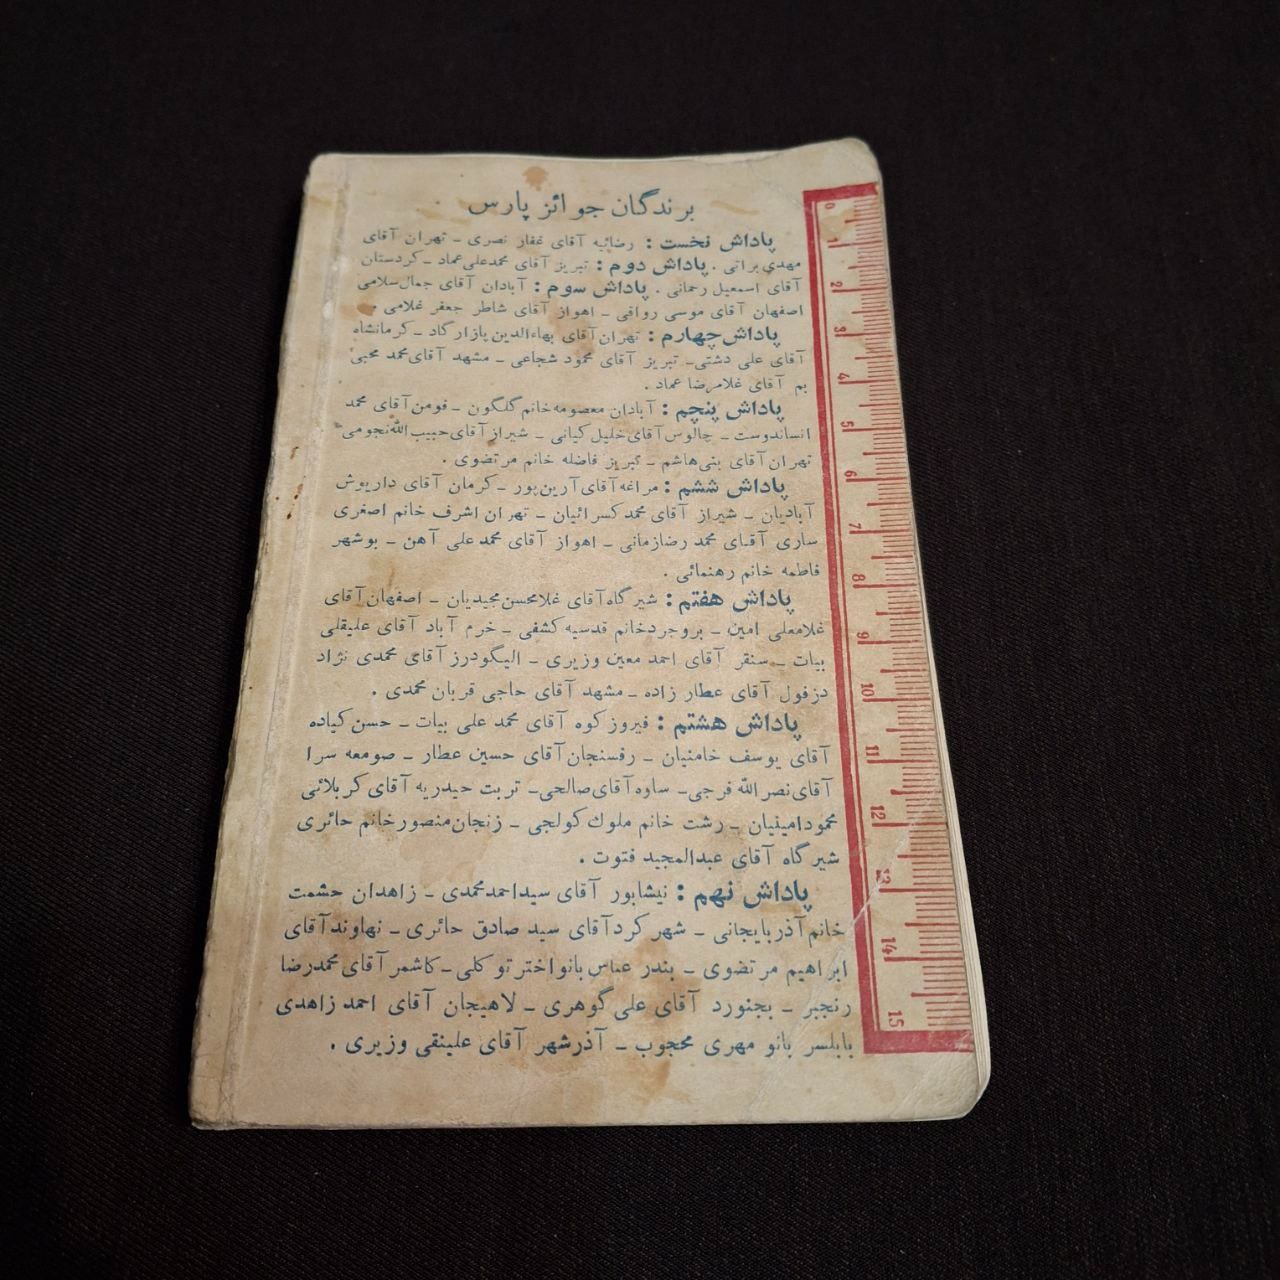 برندگان جوائز پارس
پاداش نخست : رضائیه آقای غفار نصری ـ تهران آقای
مهدی براتی . پاداش دوم : تبریز آقای محمدعلی عماد ـ کردستان
آقای اسمعیل رحمانی . پاداش سوم : آبادان آقای جمال سلامی
اصفهان آقای موسی رواقی ـ اهواز آقای شاطر جعفر غلامی .
پاداش چهارم : تهران آقای بهاءالدین بازارگاد ـ کرمانشاه
آقای علی دشتی ـ تبریز آقای محمود شجاعی ـ مشهد آقای محمد محبی
بم آقای غلامرضا عماد .
پاداش پنچم : آبادان معصومه خانم گلگون ـ فومن آقای محمد
انساندوست ـ چالوس آقای خلیل کیانی ـ شیراز آقای حبیب الله نجومی
تهران آقای بنی هاشم ـ تبریز فاضله خانم مرتضوی .
پاداش ششم : مراغه آقای آرین پور ـ کرمان آقای داریوش
آبادیان ـ شیراز آقای محمد کسرائیان ـ تهران اشرف خانم اصغری
ساری آقای محمد رضازمانی ـ اهواز آقای محمد علی آهن ـ بوشهر
فاطمه خانم رهنمائی .
پاداش هفتم : شیرگاه آقای غلامحسن مجیدیان ـ اصفهان آقای
غلامعلی امین ـ بروجرد خانم قدسیه کشفی ـ خرم آباد آقای علیقلی
بیات ـ سنقر آقای احمد معین وزیری ـ الیگودرز آقای محمدی نژاد
دزفول آقای عطار زاده ـ مشهد آقای حاجی قربان محمدی .
پاداش هشتم : فیروزکوه آقای محمد علی بیات ـ حسن کیاده
آقای یوسف خامنیان ـ رفسنجان آقای حسین عطار ـ صومعه سرا
آقای نصرالله فرجی ـ ساوه آقای صالحی ـ تربت حیدریه آقای کربلائی
محمود امینیان ـ رشت خانم ملوك کولجی ـ زنجان منصور خانم حائری
شیرگاه آقای عبدالمجید فتوت .
پاداش نهم : نیشابور آقای سیداحمد محمدی ـ زاهدان حشمت
خانم آذربایجانی ـ شهرکرد آقای سید صادق حائری ـ نهاوند آقای
ابراهیم مرتضوی ـ بندر عباس بانو اختر توکلی ـ کاشمر آقای محمدرضا
رنجبر ـ بجنورد آقای علی گوهری ـ لاهیجان آقای احمد زاهدی
بابلسر بانو مهری محجوب ـ آذرشهر آقای علینقی وزیری .
0
1
2
3
4
5
6
7
8
9
10
11
12
13
14
15